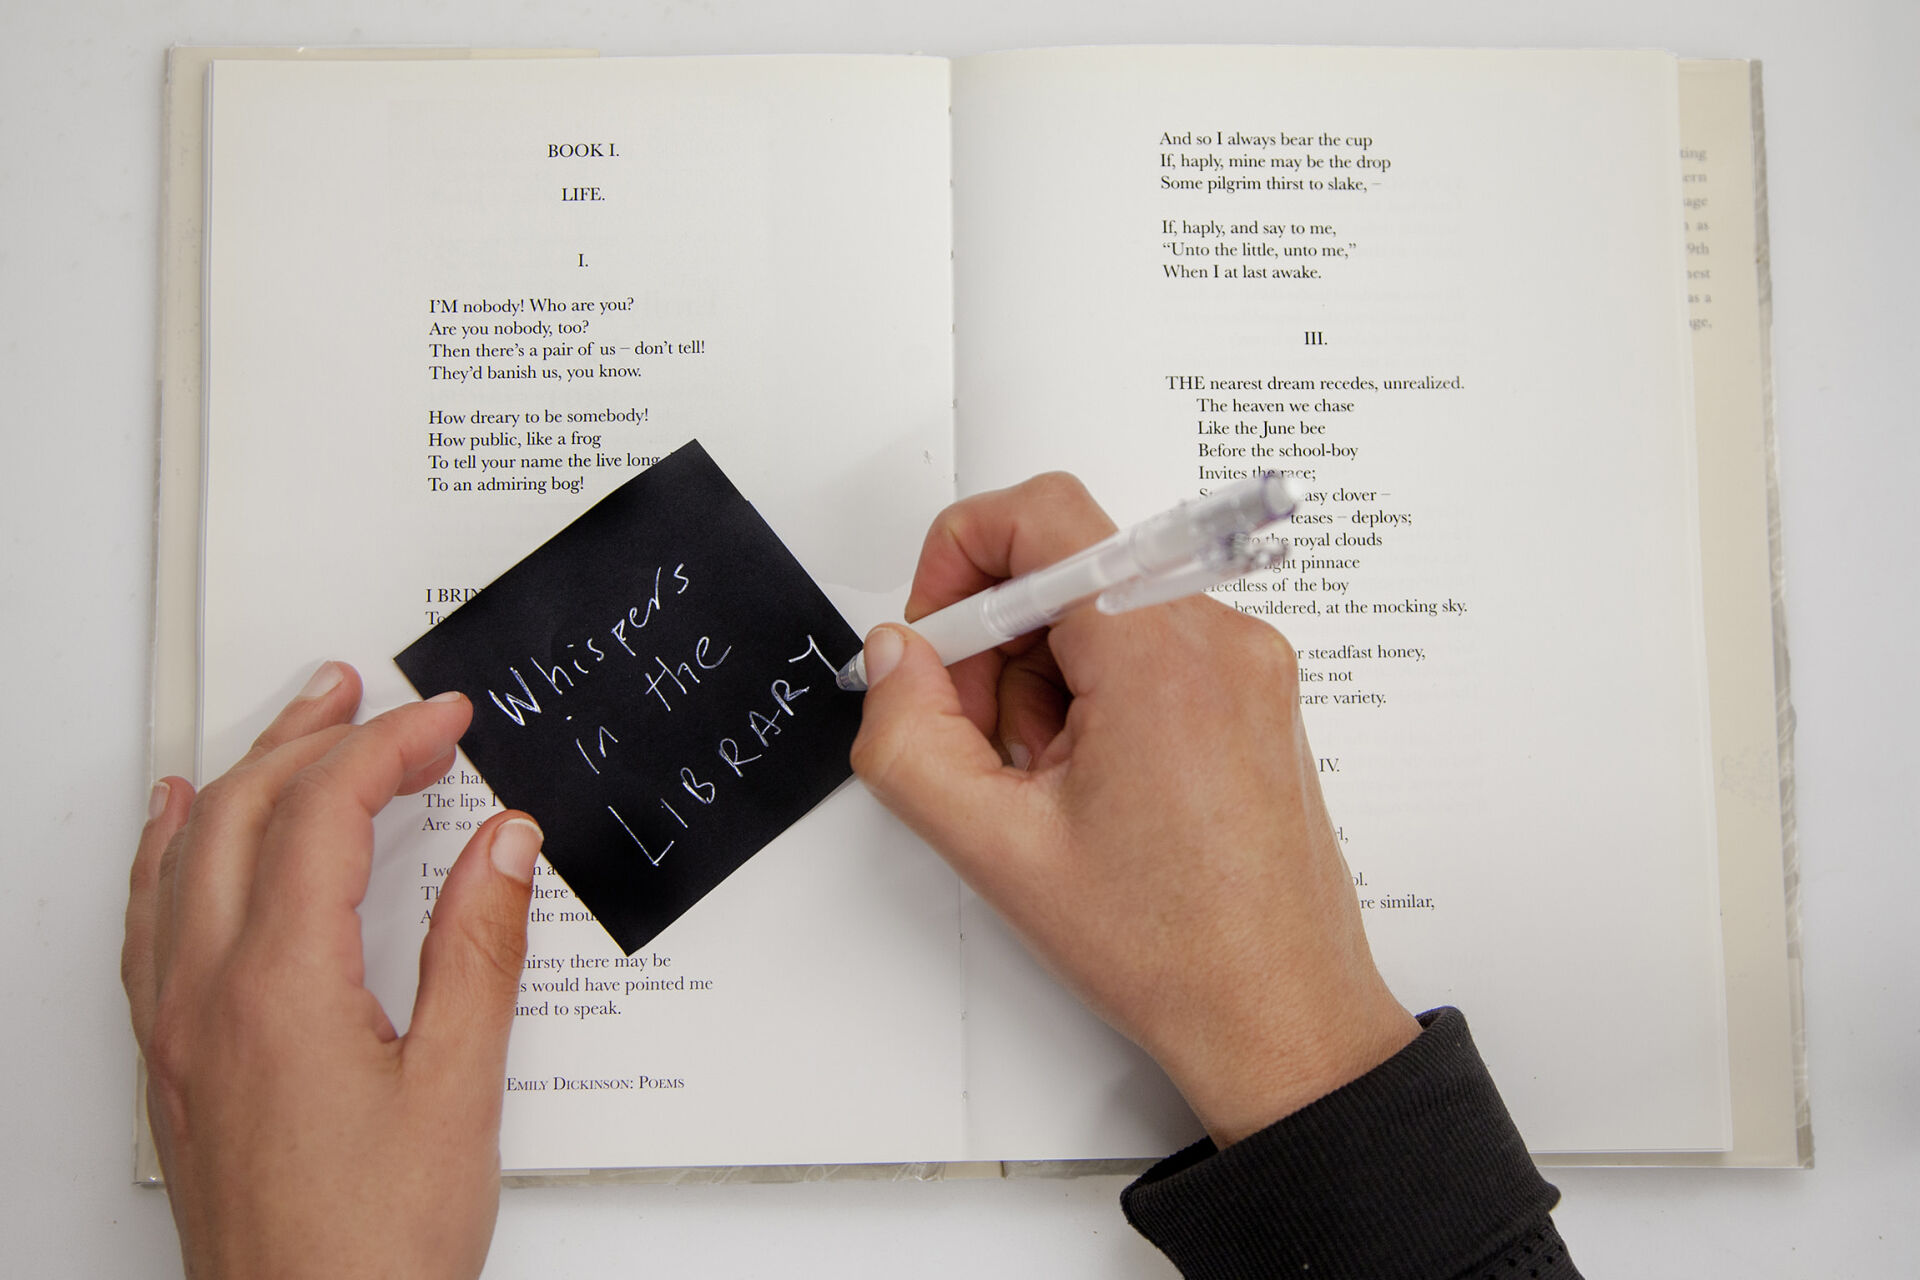 BOOK I.
LIFE.
I.
I'M nobody! Who are you?
Are you nobody, too?
Then there's a pair of us – don't tell!
They'd banish us, you know.
How dreary to be somebody!
How public, like a frog
To tell your name the live long
To an admiring bog!
I
The lips I
Are so
I
the
hirsty there may be
would have pointed me
to speak.
EMILY DICKINSON: POEMS
Whispers
in the
LIBRARY
And so I always bear the cup
If, haply, mine may be the drop
Some pilgrim thirst to slake, –
If, haply, and say to me,
“Unto the little, unto me,”
When I at last awake.
III.
THE nearest dream recedes, unrealized.
The heaven we chase
Like the June bee
Before the school-boy
Invites the race;
clover –
teases – deploys;
the royal clouds
pinnace
of the boy
bewildered, at the mocking sky.
steadfast honey,
not
rare variety.
IV.
similar,
9th
as a
as